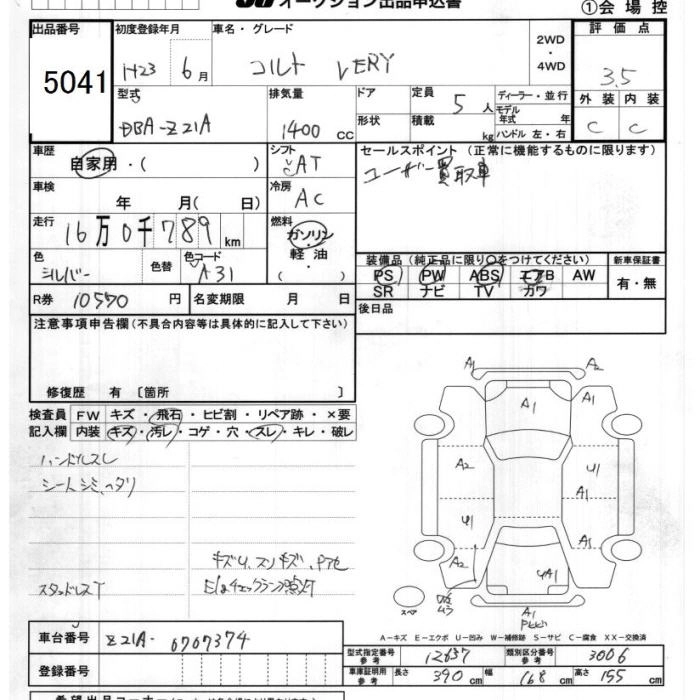 オークション出品申込書
①会場控
出品番号
5041
初度登録年月
H23 6月
車名・グレード
コルト VERY
2WD
・
4WD
評価点
3.5
外装 内装
C C
型式
DBA-Z21A
排気量
1400 CC
ドア
形状
定員 5人
積載 kg
ディーラー・並行
モデル
年式 年
ハンドル 左・右
車歴
自家用・( )
シフト
AT
セールスポイント (正常に機能するものに限ります)
ユーザー買取車
車検
年 月( 日)
冷房
AC
走行
16万0千789km
燃料
ガソリン
軽油・
( )
色
シルバー
色替
色コード
A31
装備品 (純正品に限り○をつけてください)
PS PW ABS エアB AW
SR ナビ TV カワ
新車保証書
有・無
R券 10570円
名変期限 月 日
後日品
注意事項申告欄(不具合内容等は具体的に記入して下さい)
修復歴 有 〔箇所 〕
検査員 FW キズ・飛石・ヒビ割・リペア跡・×要
記入欄 内装 キズ・汚レ・コゲ・穴・スレ・キレ・破レ
ハンドルスレ
シートシミ、ヘタリ
スタッドレスT
A1 A2
A1
A2 U1 A1
U1 A1
A2 UA1
A1
スペア
A−キズ E−エクボ U−凹み W−補修跡 S−サビ C−腐食 XX−交換済
車台番号
Z21A-0707374
登録番号
型式指定番号
参考
12637
類別区分番号
参考
3006
車庫証明用
参考
長さ 390 cm 幅 168 cm 高さ 155 cm